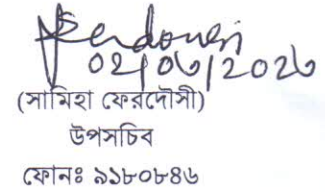 Ferdousi
02/06/2026
(সামিহা ফেরদৌসী)
উপসচিব
ফোনঃ ৯১৮০৮৪৬